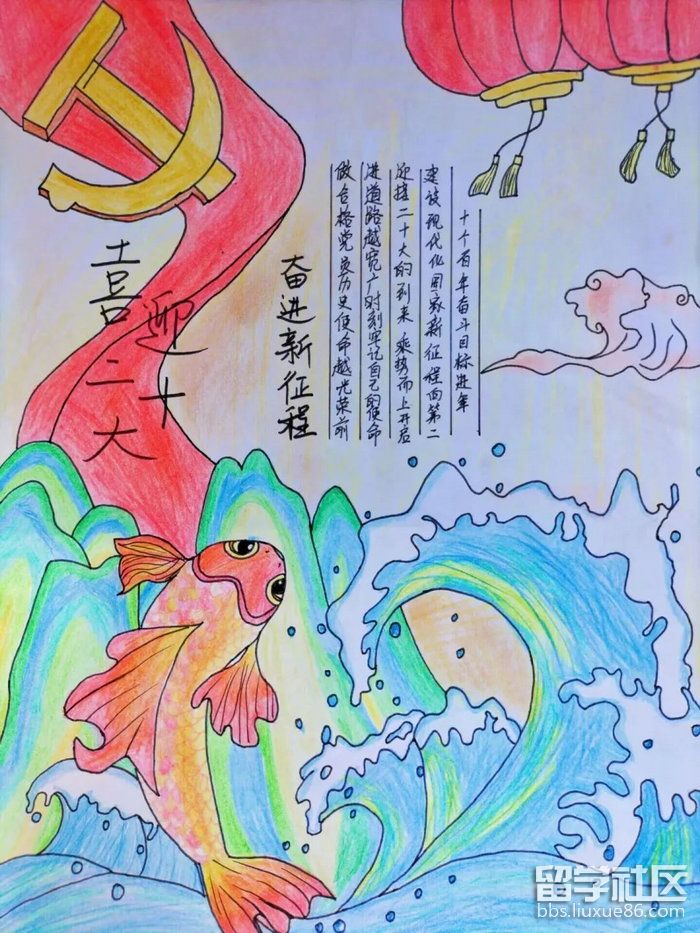 喜迎
二十
大
奋进新征程
十个百年奋斗目标进年
建设现代化国家新征程向第二
迎接二十大的到来 乘势而上开启
进道路越宽广时刻牢记自己的使命
做合格党员历史使命越光荣前
留学社区
bbs.liuxue86.com